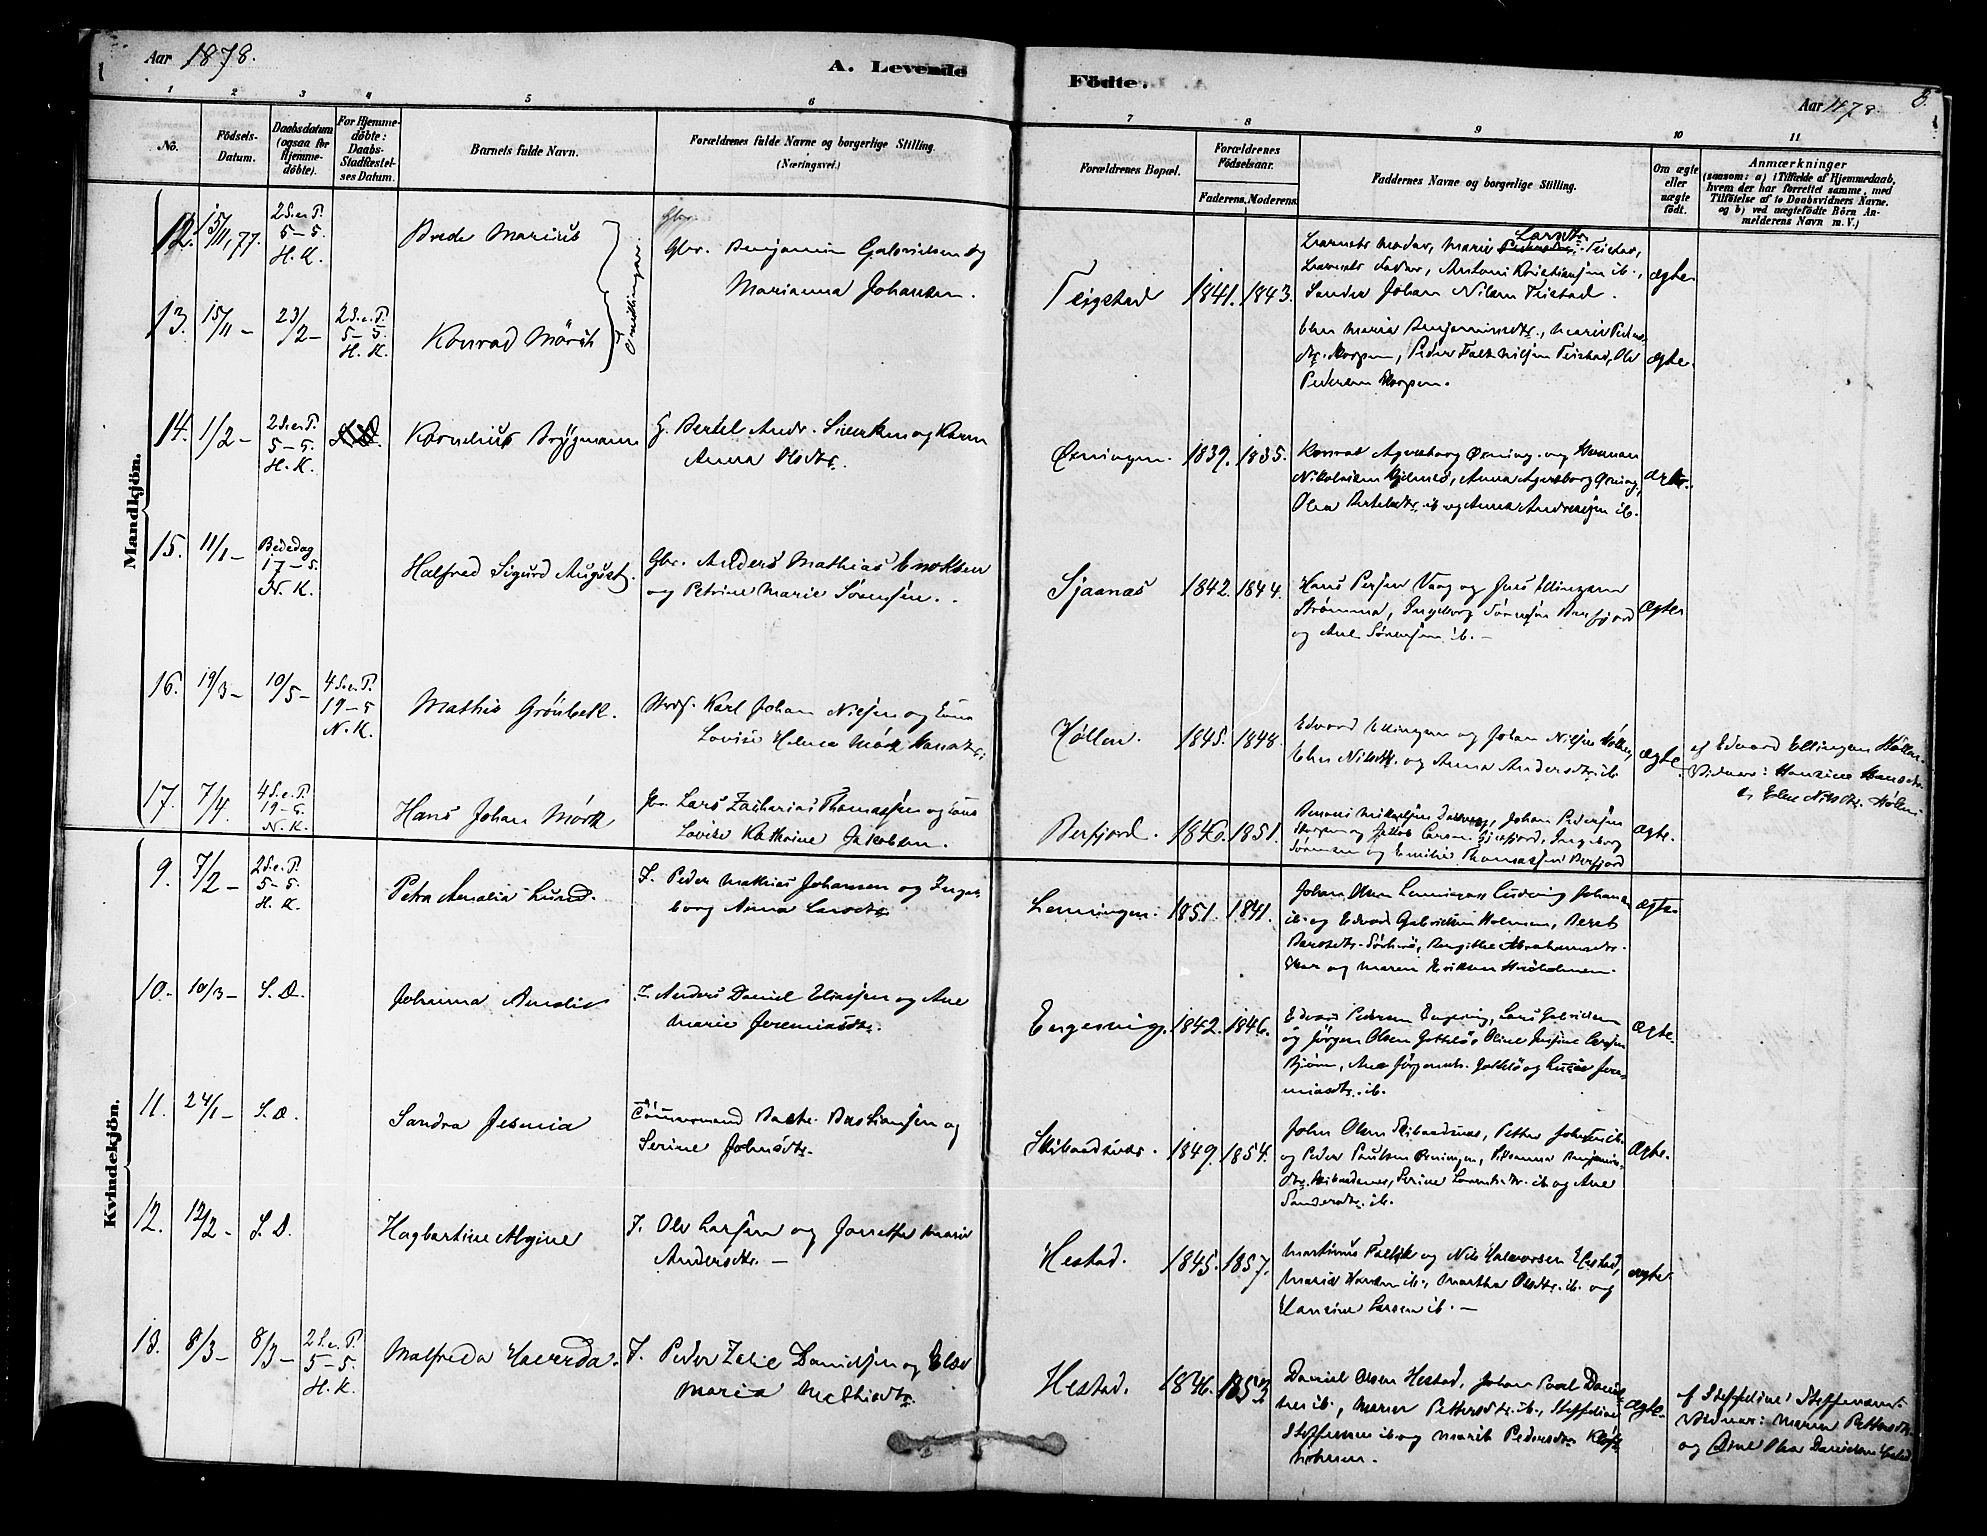 Aar 1878.
A. Levende
Födte.
Aar 1878
8.
1
2
3
4
5
6
7
8
9
10
11
No.
Födsels-
Datum.
Daabsdatum
(ogsaa for
Hjemme-
döbte).
For Hjemme-
döbte:
Daabs-
Stadfæstel-
ses Datum.
Barnets fulde Navn.
Forældrenes fulde Navne og borgerlige Stilling.
(Næringsvei.)
Forældrenes Bopæl.
Forældrenes
Födselsaar.
Faderens.
Moderens.
Faddernes Navne og borgerlige Stilling.
Om ægte
eller
uægte
födt.
Anmærkninger
(saasom: a) i Tilfælde af Hjemmedaab,
hvem der har forrettet samme, med
Tilföielse af to Daabsvidners Navne.
og b) ved uægtefödte Börn An-
melderens Navn m. V.)
Mandkjön.
12. 15/11, 77. 2 S. e. P. 5-5. H. K. Brede Marius
Gbr. Benjamin Gabrielsen og
Marianna Johansen.
Teigstad 1841. 1843.
Barnets Moder, Marie Larsdtr. Teistad,
Barnets Fader, Antoni Kristiansen ib.,
Sander Johan Nilsen Teistad.
ægte
Tvillinger.
13. 15/11 - 23/2 - 2 S. e. P. 5-5. H. K. Konrad Mörch
Elen Maria Benjaminsdtr., Marie Peders-
dtr. Skorpen, Peder Falk Nilsen Teistad, Ole
Pedersen Skorpen.
ægte.
14. 1/2 - 2 S. e. P. 5-5. H. K. Kornelius Brygmann
G. Bertel Andr. Sivertsen og Karen
Anna Olsdtr.
Øxningen. 1839. 1835.
Konrad Agersborg Øxning. og Herman
Nikolaisen Hjelmsö, Anna Agersborg Øxning,
Olea Bertelsdtr. ib. og Anna Andreasen ib.
ægte.
15. 11/1 - Bededag 17-5. N. K. Halfred Sigurd August.
Gbr. Anders Mathias Enoksen
og Petrine Marie Sörensen.
Sjaanæs 1842. 1844.
Hans Persen Vaag og Jens Ellingsen
Strømma, Ingeborg Sörensen Berfjord
og Ane Sörensen ib. -
ægte
16. 19/3 - 10/5 - 4 S. e. P. 19-5 N. K. Mathis Grönbech.
Karl Johan Nilsen og
Lovise Helmea Mörk Hansdtr.
Høllen. 1845. 1848.
Edvard Ellingsen og Johan Nilsen Høllen,
Elen Nilsdtr. og Anna Andersdtr. ib.
ægte.
af Edvard Ellingsen Høllen.
Vidner: Hansine Hansdtr.
og Elen Nilsdtr. Høllen.
17. 7/4. 4 S. e. P. 19-5. N. K. Hans Johan Mörk
Gbr. Lars Zacharias Thomassen og
Lovise Kathrine Jakobsen.
Berfjord. 1840. 1851.
Johan Pedersen
Skorpen og Jakob Larsen Gjerfjord, Ingeborg
Sörensen og Emilie Thomassen Berfjord
ægte.
Kvindekjön.
9. 7/2 - 2 S. e. P. 5-5. H. K. Petra Amalia Lund.
I. Peder Mathias Johansen og Inge-
borg Anna Larsdtr.
Lenningen. 1851. 1841.
Johan Olsen Lenningen, Ludvig Johansen
ib. og Edvard Gabrielsen Holmen, Beret
Birgithe Abrahamsdtr.
og Maren Eriksen
ægte
10. 10/3 - S. D. Johanna Amalie
I. Anders Daniel Eliassen og Ane
Marie Jeremiasdtr.
Engesvig. 1842. 1846.
Edvard Pedersen Engesvig, Lars Gabrielsen
og Jörgen Olsen Oline Jensine Larsen
Björn, Ane Jörgensdtr. og Jere-
miasdtr. ib.
ægte.
11. 24/1 - S. D. Sandra Jesmia
Tömmermand Bastian Bastiansen og
Serine Johnsdtr.
Skibaadsvær. 1849. 1854.
John Olsen Skibaadsvær, Petter Johnsen ib.
og Peder Paulsen Øxningen, Benjamins-
dtr. Skibaadsvær, Serine Larsdtr. ib. og Ane
Sandersdtr. ib.
ægte.
12. 12/2 - S. D. Hagbartine Algine
I. Ole Larsen og Jonetha Marie
Andersdtr. -
Hestad. 1845. 1857.
Martinus Falck og Nils Halvorsen Hestad,
Maria Hansen ib., Martha Olsdtr. ib. og
Hansine Larsen ib. -
ægte
13. 8/3 - 8/3 - 2 S. e. P. 5-5. H. K. Malfreda Haverda.
I. Peder Zelie Danielsen og Else
Maria Mathisdtr.
Hestad. 1846. 1853
Daniel Olsen Hestad, Johan Povel Daniel-
sen ib., Maren Pettersdtr. ib., Steffeline
Steffensen ib. og Marit Pedersdtr.
ægte.
af Steffeline Steffensen.
Vidner: Maren Pettersdtr.
og Ane Olea Danielsen Hestad